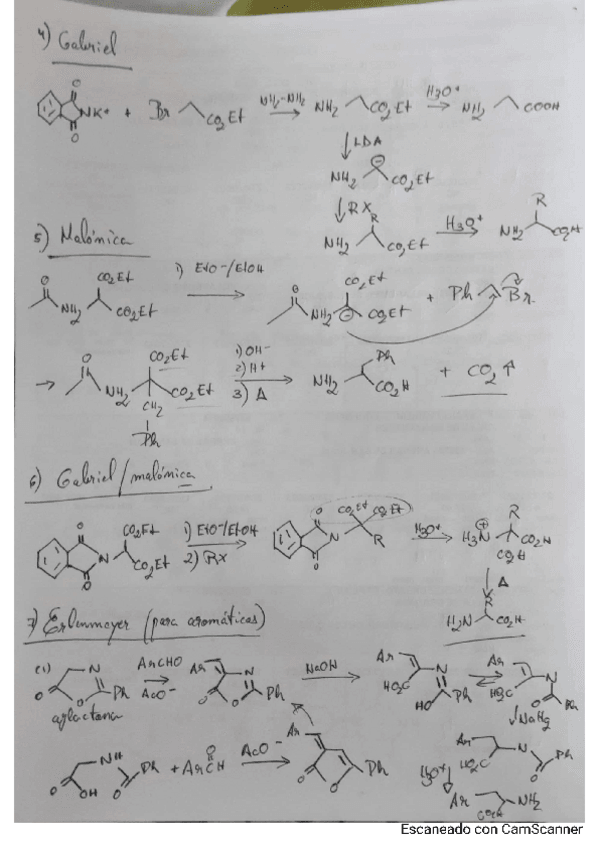 4) Gabriel
O
NK+ + Br CO2Et NH2-NH2 NH2 CO2Et H3O+ NH2 COOH
O
↓ LDA
NH2 ⊖ CO2Et
↓ RX
R
NH2 CO2Et H3O+ NH2 R CO2H
5) Malónica
O NH2 CO2Et CO2Et 1) EtO-/EtOH O NH2 ⊖ CO2Et CO2Et + Ph Br
→ O NH2 CO2Et CO2Et CH2 Ph 1) OH- 2) H+ 3) Δ NH2 Ph CO2H + CO2 ↑
6) Gabriel/malónica
O N O CO2Et CO2Et 1) EtO-/EtOH 2) RX O N O CO2Et CO2Et R H3O+ H3N ⊕ R CO2H CO2H
↓ Δ
H2N R CO2H
7) Erlenmeyer (para aromáticas)
O O N Ph ArCHO AcO- Ar N O O Ph NaOH Ar HO2C N HO Ph Ar HO2C N O Ph
azlactona
↓ NaHg
O OH NH O Ph + ArCH O AcO- Ar O O Ph
Ar HO2C N O Ph
H3O+ ↓
Ar CO2H NH2
Escaneado con CamScanner